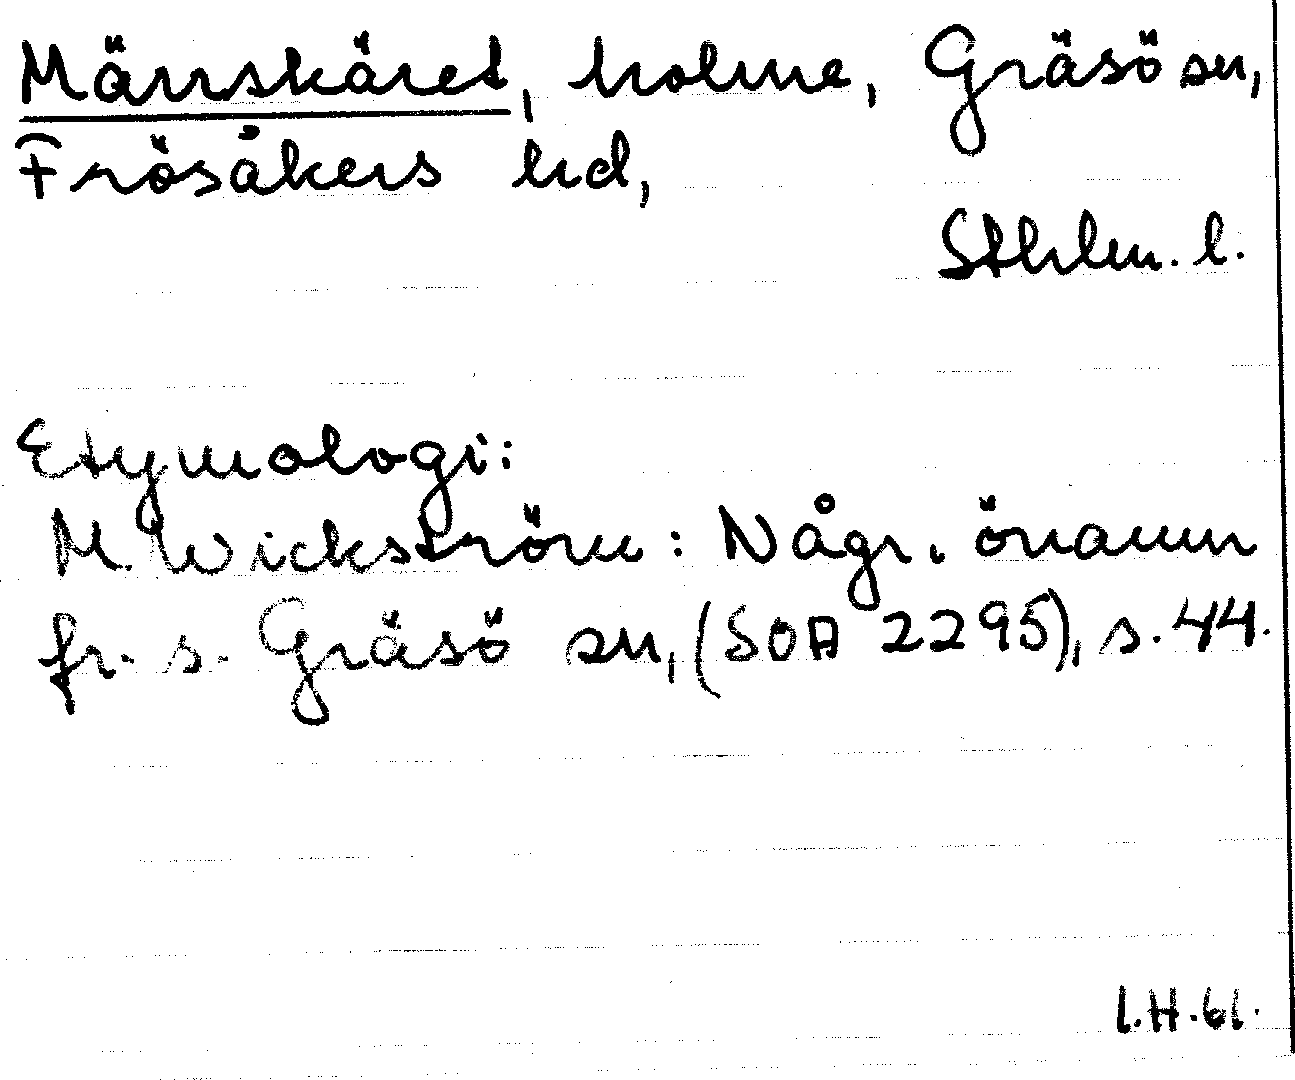 Märrskäret, holme, Gräsö sn,
Frösåkers hd,
Sthlm. l.
Etymologi:
M. Wickström: Någr. önamn
fr. s. Gräsö sn, (SOA 2295), s. 44.
I.H.61.